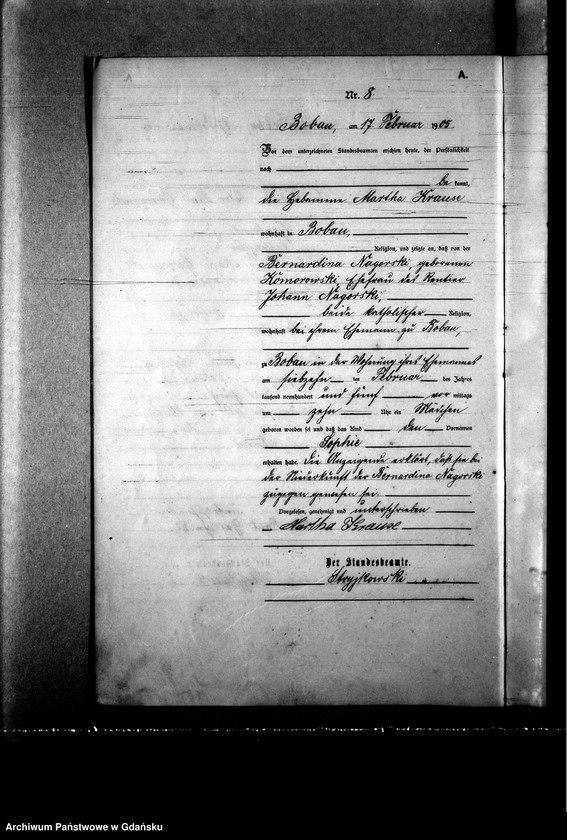 A.
Nr. 8
Bobau, am 17 Februar 1905.
Vor dem unterzeichneten Standesbeamten erschien heute, der Persönlichkeit
nach
be kannt,
die Hebamme Martha Krause
wohnhaft in Bobau,
Religion, und zeigte an, daß von der
Bernardina Nagorski, geborenen
Komorowski, Ehefrau des Rentier
Johann Nagorski,
beide katholischer Religion,
wohnhaft bei ihrem Ehemann zu Bobau,
zu Bobau in der Wohnung ihres Ehemannes
am siebzehn ten Februar des Jahres
tausend neunhundert und fünf vor mittags
um zehn Uhr ein Mädchen
geboren worden sei und daß das Kind den Vornamen
Sophie
erhalten habe. Die Anzeigende erklärt, daß sie bei
der Niederkunft der Bernardina Nagorski
zugegen gewesen sei.
Vorgelesen, genehmigt und unterschrieben
Martha Krause
Der Standesbeamte.
Stryjkowski
Archiwum Państwowe w Gdańsku